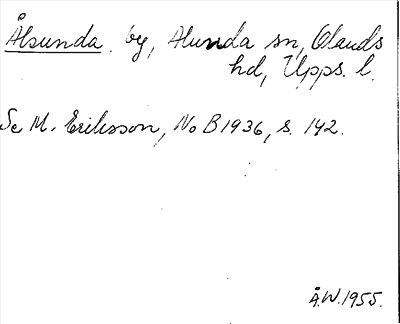 Ålsunda by, Alunda sn, Olands
hd, Upps. l.
Se M. Eriksson, No B 1936, s. 142.
Å.W. 1955.